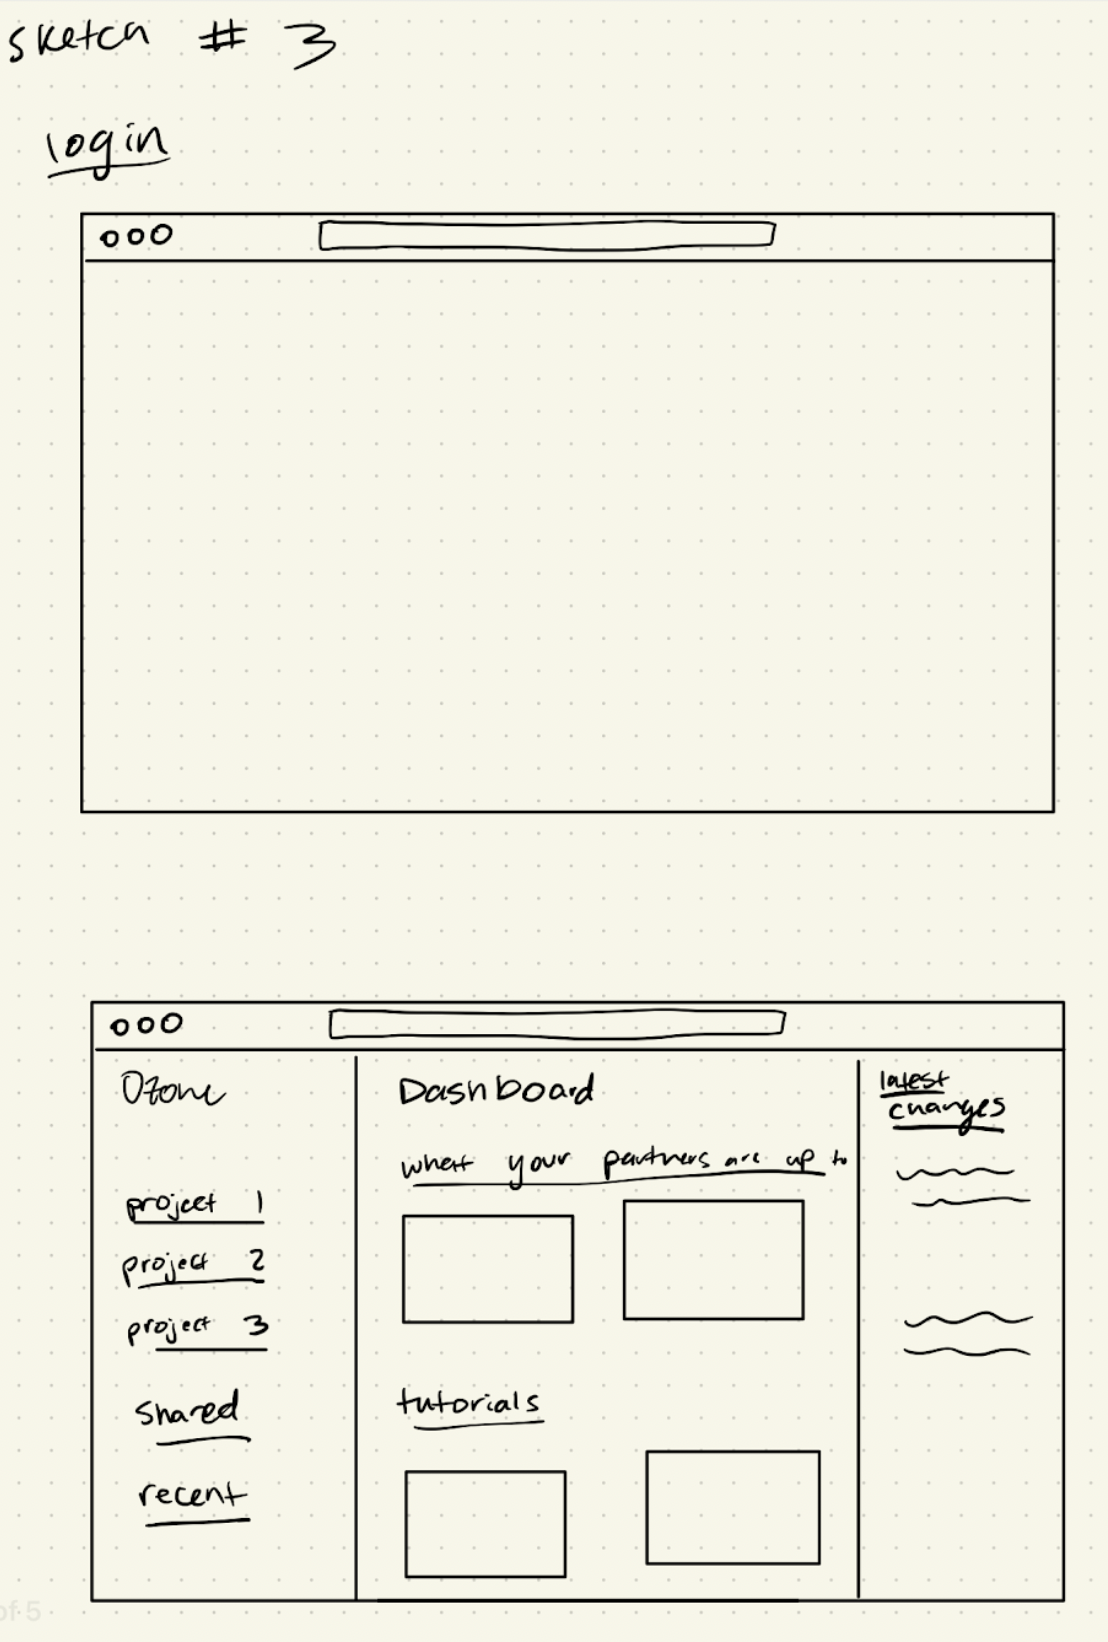 sketch # 3
login
Ozone
project 1
project 2
project 3
shared
recent
Dashboard
what your partners are up to
tutorials
latest
changes
of 5